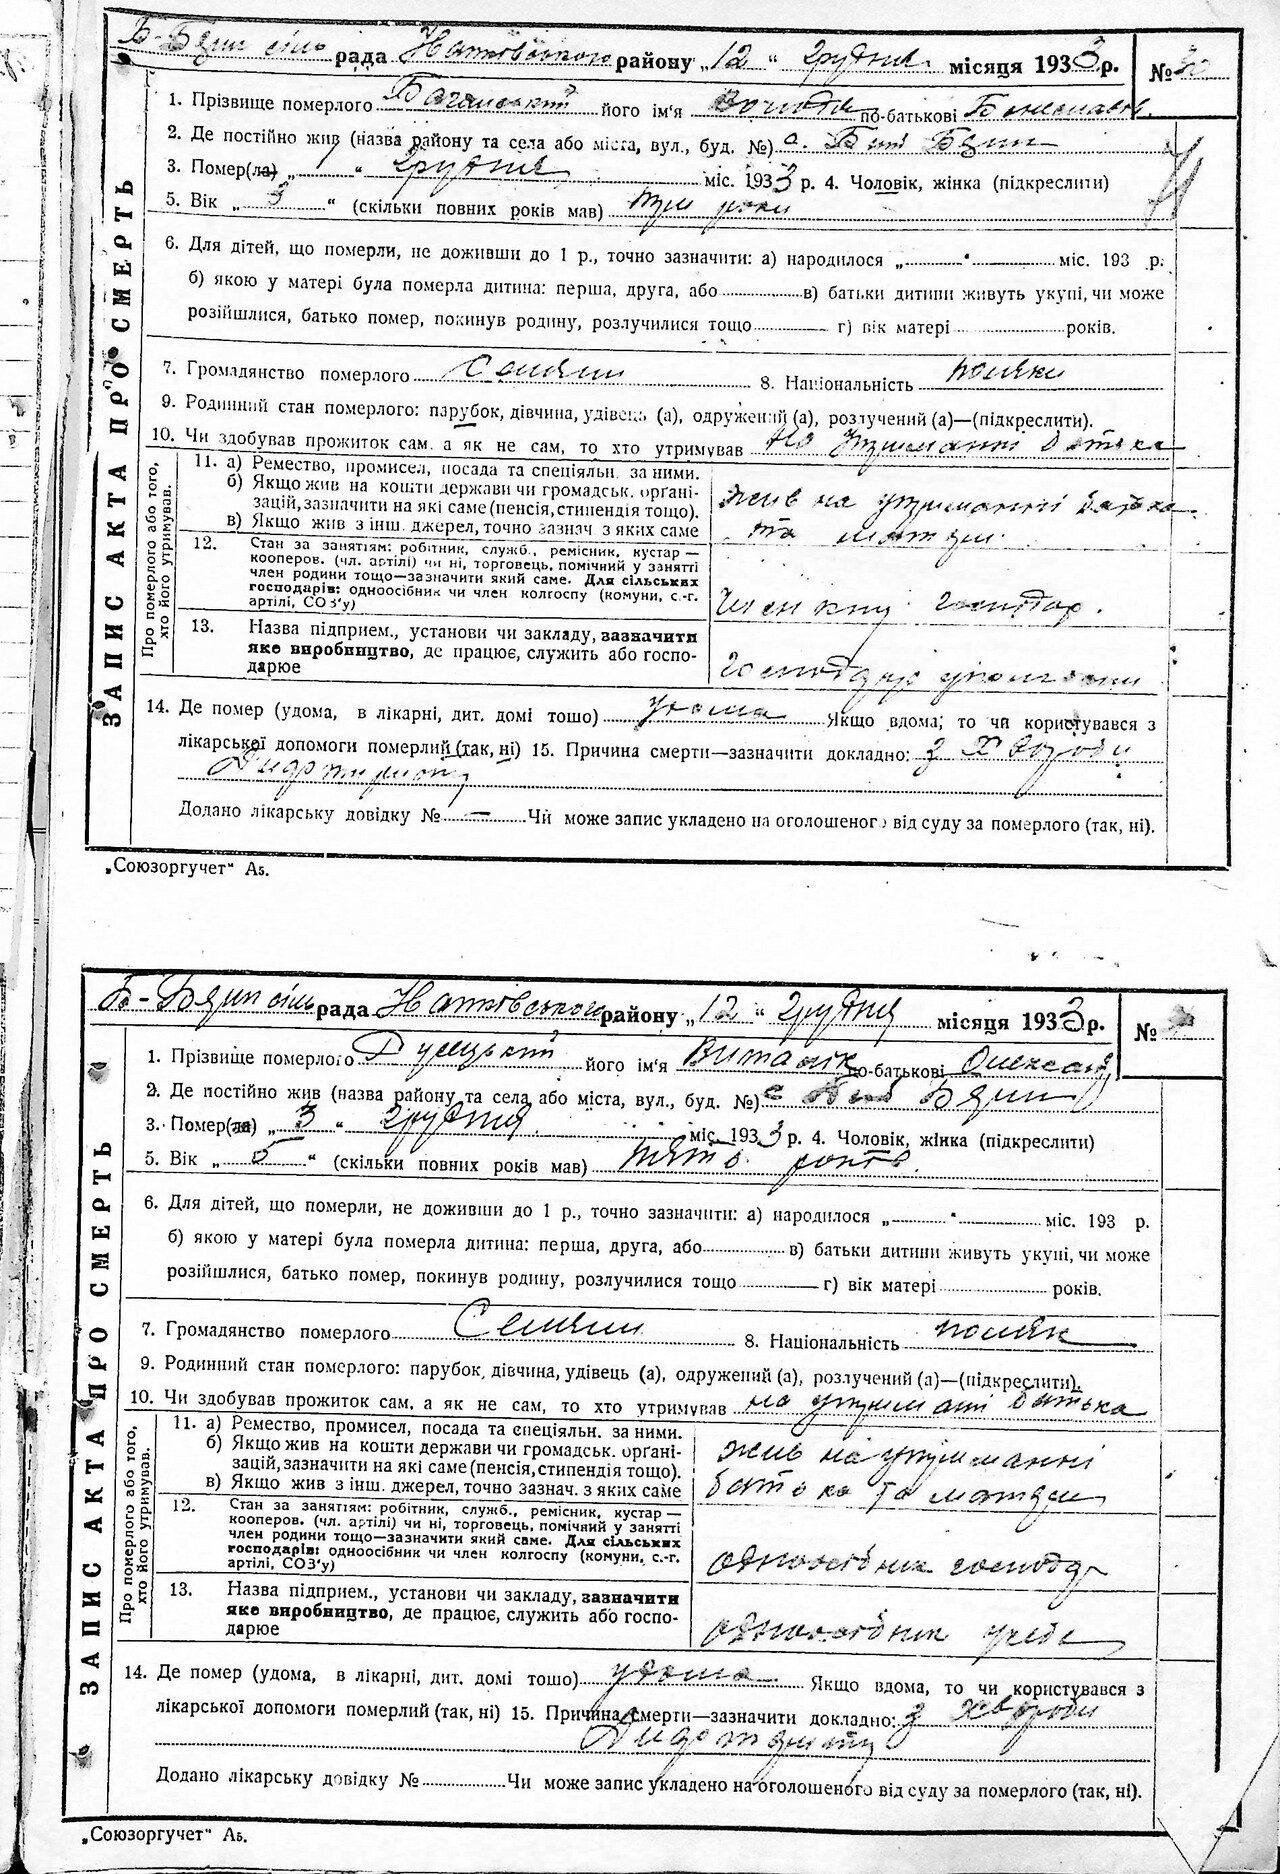 Б-БЯрп сіль рада району „12 “ грудня місяця 1933 р. №
1. Прізвище померлого його ім'я по-батькові
2. Де постійно жив (назва району та села або міста, вул., буд. №) с. Білі
3. Помер(ла) „ “ грудня міс. 1933 р. 4. Чоловік, жінка (підкреслити)
5. Вік „ 3 “ (скільки повних років мав) три роки
6. Для дітей, що померли, не доживши до 1 р., точно зазначити: а) народилося „ “ міс. 193 р.
б) якою у матері була померла дитина: перша, друга, або в) батьки дитини живуть укупі, чи може
розійшлися, батько помер, покинув родину, розлучилися тощо г) вік матері років.
7. Громадянство померлого Селянин 8. Національність поляки
9. Родинний стан померлого: парубок, дівчина, удівець (а), одружений (а), розлучений (а)—(підкреслити).
10. Чи здобував прожиток сам, а як не сам, то хто утримував на утриманні батька
ЗАПИС АКТА ПРО СМЕРТЬ
Про померлого або того,
хто його утримував.
11. а) Ремество, промисел, посада та спеціяльн. за ними.
б) Якщо жив на кошти держави чи громадськ. орґані-
зацій, зазначити на які саме (пенсія, стипендія тощо).
в) Якщо жив з інш. джерел, точно зазнач. з яких саме
жив на утриманні батька
та матери
12. Стан за занятіям: робітник, служб., ремісник, кустар —
кооперов. (чл. артілі) чи ні, торговець, помічний у занятті
член родини тощо—зазначити який саме. Для сільських
господарів: одноосібник чи член колгоспу (комуни, с.-г.
артілі, СОЗ'у)
член господар.
13. Назва підприєм., установи чи закладу, зазначити
яке виробництво, де працює, служить або госпо-
дарює
14. Де помер (удома, в лікарні, дит. домі тощо) удома Якщо вдома, то чи користувався з
лікарської допомоги померлий (так, ні) 15. Причина смерти—зазначити докладно: з хвороби
Дифтириту
Додано лікарську довідку № — Чи може запис укладено на оголошеного від суду за померлого (так, ні).
„Союзоргучет“ А5.
рада району „12 “ грудня місяця 1933 р. №
1. Прізвище померлого його ім'я Виталік по-батькові Олександ
2. Де постійно жив (назва району та села або міста, вул., буд. №) с
3. Помер(ла) „ 3 “ грудня міс. 1933 р. 4. Чоловік, жінка (підкреслити)
5. Вік „ 5 “ (скільки повних років мав) пять років
6. Для дітей, що померли, не доживши до 1 р., точно зазначити: а) народилося „ “ міс. 193 р.
б) якою у матері була померла дитина: перша, друга, або в) батьки дитини живуть укупі, чи може
розійшлися, батько помер, покинув родину, розлучилися тощо г) вік матері років.
7. Громадянство померлого Селянин 8. Національність поляк
9. Родинний стан померлого: парубок, дівчина, удівець (а), одружений (а), розлучений (а)—(підкреслити).
10. Чи здобував прожиток сам, а як не сам, то хто утримував на утриманні батька
ЗАПИС АКТА ПРО СМЕРТЬ
Про померлого або того,
хто його утримував.
11. а) Ремество, промисел, посада та спеціяльн. за ними.
б) Якщо жив на кошти держави чи громадськ. орґані-
зацій, зазначити на які саме (пенсія, стипендія тощо).
в) Якщо жив з інш. джерел, точно зазнач. з яких саме
жив на утриманні
батька та матери
12. Стан за занятіям: робітник, служб., ремісник, кустар —
кооперов. (чл. артілі) чи ні, торговець, помічний у занятті
член родини тощо—зазначити який саме. Для сільських
господарів: одноосібник чи член колгоспу (комуни, с.-г.
артілі, СОЗ'у)
одноосібник господар
13. Назва підприєм., установи чи закладу, зазначити
яке виробництво, де працює, служить або госпо-
дарює
одноосібник
14. Де помер (удома, в лікарні, дит. домі тощо) удома Якщо вдома, то чи користувався з
лікарської допомоги померлий (так, ні) 15. Причина смерти—зазначити докладно: з хвороби
Дифтириту
Додано лікарську довідку № Чи може запис укладено на оголошеного від суду за померлого (так, ні).
„Союзоргучет“ А5.